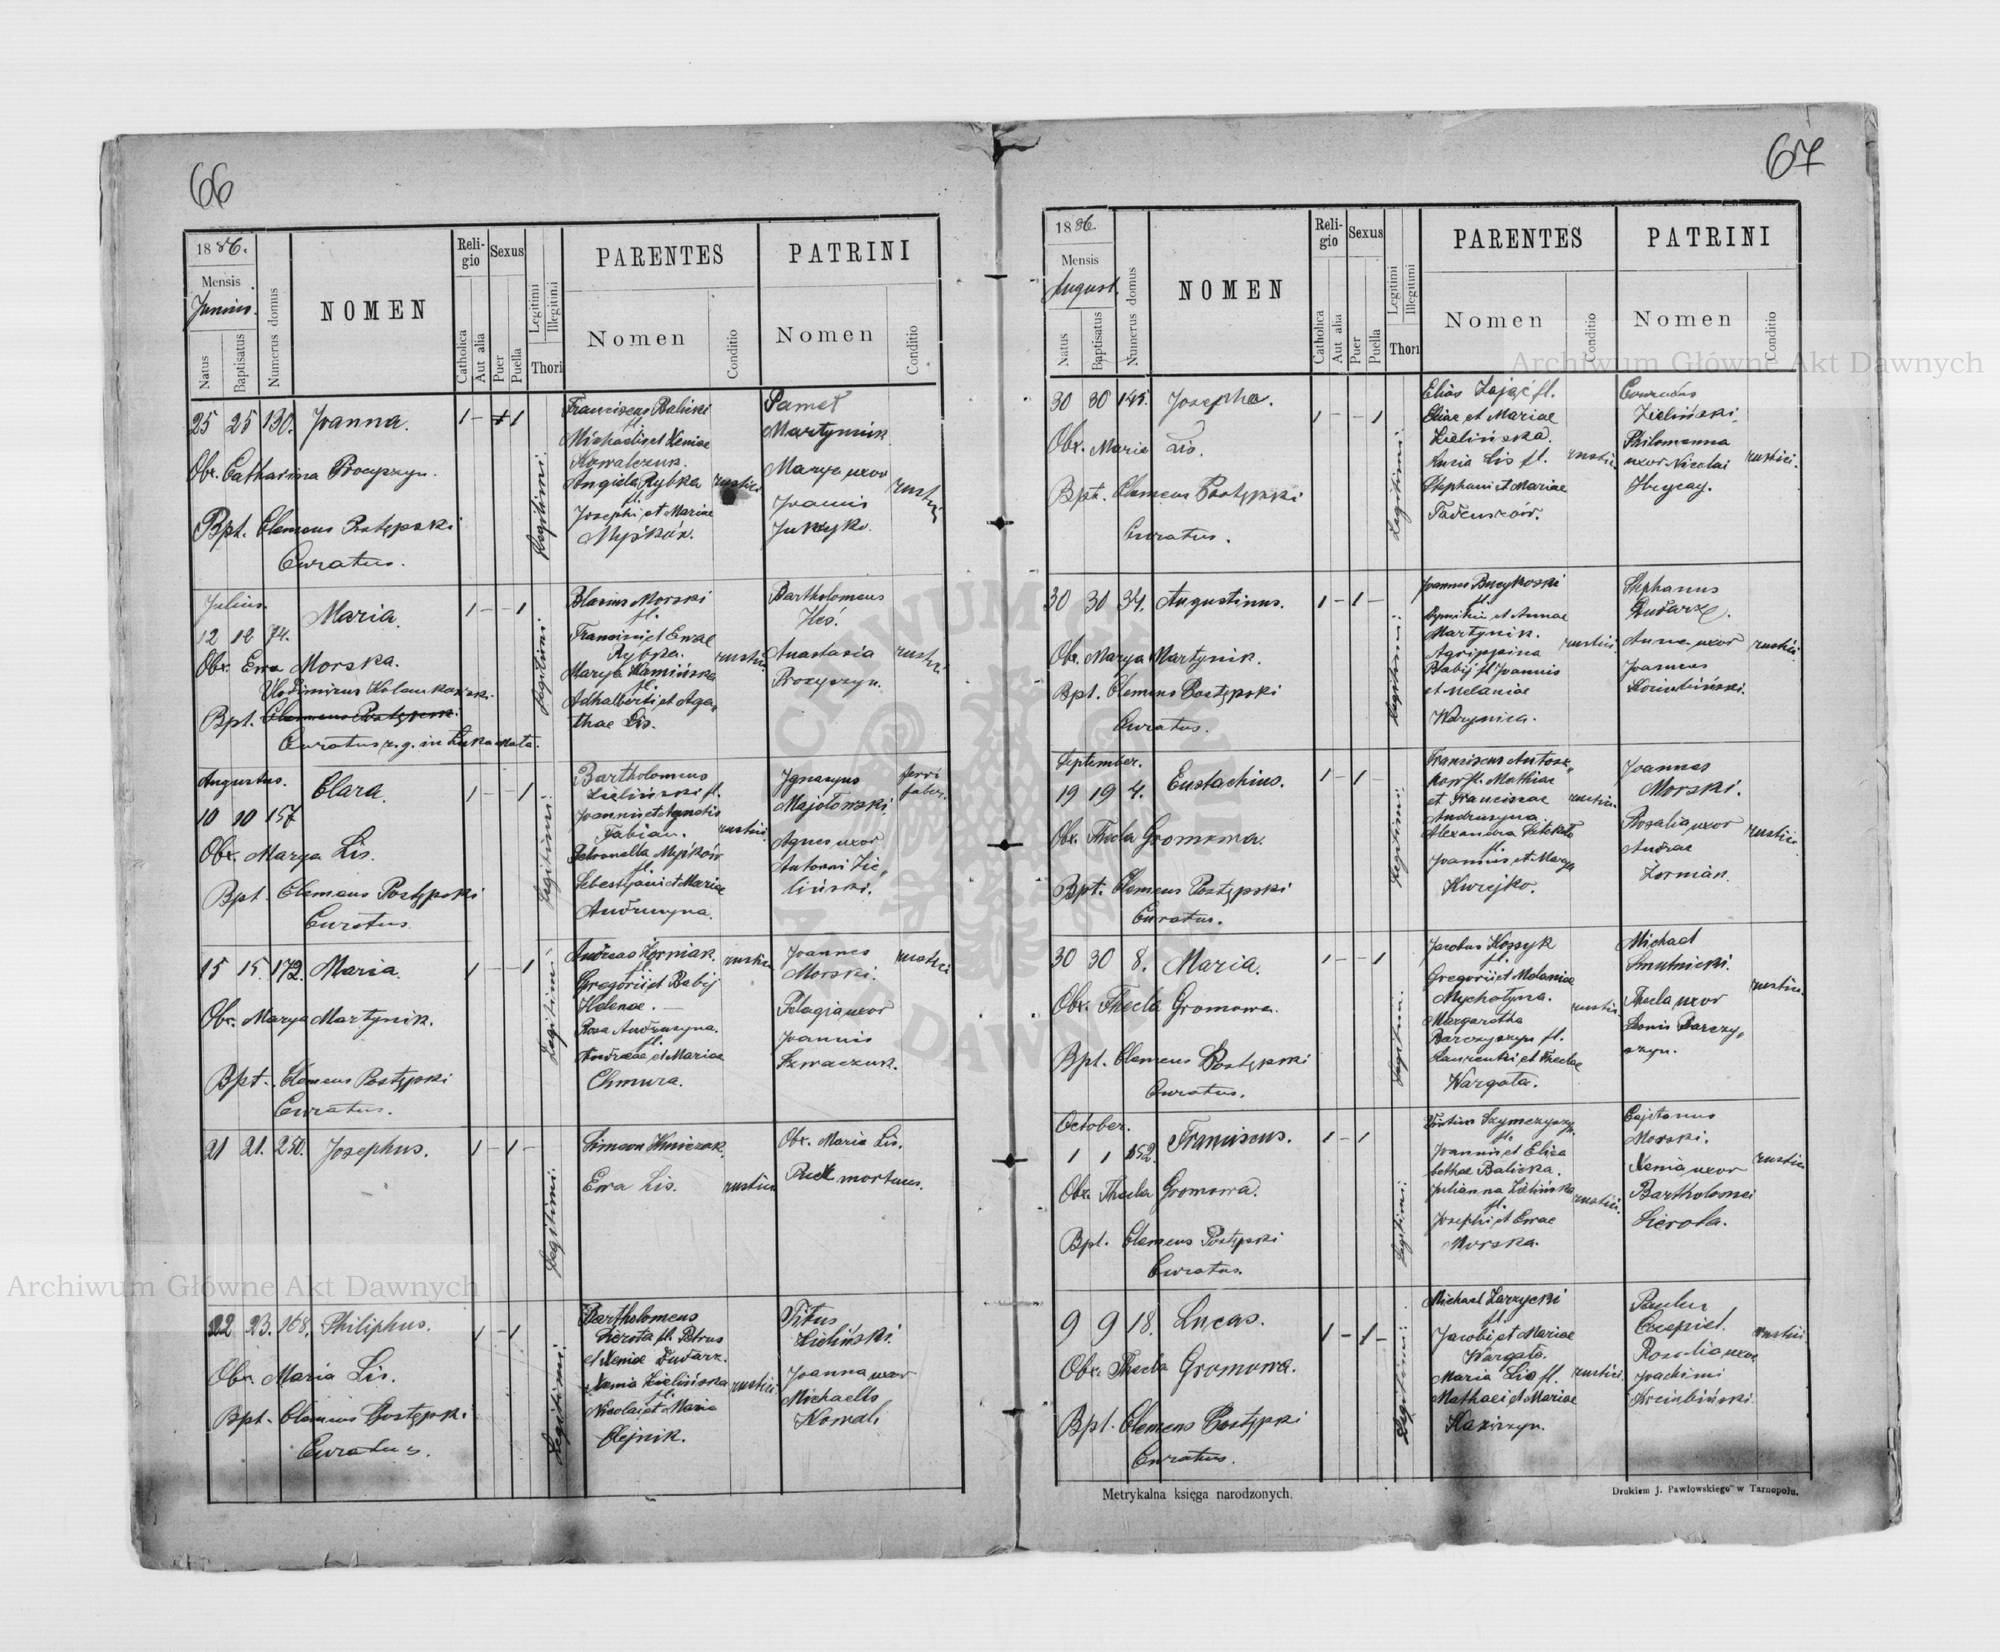 66
1886.
Mensis
Junius.
Natus
Baptisatus
Numerus domus
NOMEN
Religio
Catholica
Aut alia
Sexus
Puer
Puella
Legitimi
Illegitimi
Thori
PARENTES
Nomen
Conditio
PATRINI
Nomen
Conditio
25 25 130. Joanna.
Obx. Catharina Procyszyn.
Bpt. Clemens Postępski
Curatus.
Legitimi.
Franciscus Balicki
fl.
Michaelis et Xeniae
Kowalczuk.
Angiela Rybka
fl.
Josephi et Mariae
rustici
Martyniuk
Marya uxor
Joannis
rustici
Julius.
12 12 74.
Maria.
Obx. Ewa Morska.
Bpt. Clemens Postępski
Curatus r. g. in Łuka Mała.
Legitimi
Blasius Morski
fl.
Francisci et Ewae
Rybka.
Marya Kamińska
fl.
Adhalberti et Aga-
thae Lis.
rustici
Bartholomeus
Anastasia
Procyszyn.
rustici
Augustus.
10 10 157
Clara.
Obx. Marya Lis.
Bpt. Clemens Postępski
Curatus.
Legitimi.
Bartholomeus
Zieliński fl.
Joannis et Agnetis
Fabian.
Petronella
fl.
Sebestyani et Mariae
Andruszyna.
rustici
Ignacyus
Majołowski,
Agnes uxor
Antonii Zie-
liński.
ferri
faber.
15 15. 172. Maria.
Obx. Marya Martynik.
Bpt. Clemens Postępski
Curatus.
Legitimi.
Andreas Żorniak.
fl.
Gregorii et Babij
Helenae.
Rosa Andruszyna.
fl.
Andreae et Mariae
Chmura.
rustici
Joannes
Morski.
Pelagia uxor
Joannis
Szwaczuk.
rustici
21 21. 250. Josephus.
Legitimi.
Simeon
Ewa Lis.
rustici
Obx. Maria Lis.
mortuus.
22 23. 168. Philiphus.
Obx. Maria Lis.
Bpt. Clemens Postępski
Curatus.
Legitimi.
Bartholomeus
Sierota fl. Petrus
et Xeniae Dudarz.
Xenia Zielińska
fl.
Nicolai et Maria
Olejnik.
rustici
Titus
Zieliński.
Joanna uxor
Michaelis
Kowal.
67
1886.
Mensis
August.
Natus
Baptisatus
Numerus domus
NOMEN
Religio
Catholica
Aut alia
Sexus
Puer
Puella
Legitimi
Illegitimi
Thori
PARENTES
Nomen
Conditio
PATRINI
Nomen
Conditio
30 30 145. Josepha.
Obx. Maria Lis.
Bpt. Clemens Postępski
Curatus.
Legitimi.
Elias Zając fl.
Eliae et Mariae
Zielińska.
Lucia Lis fl.
Stephani et Mariae
rustici
Conradus
Zieliński.
Philomenna
uxor Nicolai
rustici.
30 30 34. Augustinus.
Obx. Marya Martynik.
Bpt. Clemens Postępski
Curatus.
Legitimi.
Joannes Buczykoski
fl.
Dymitrii et Annae
Martynik.
Agrippina
Babij fl. Joannis
et Melaniae
Warynica.
rustici.
Stephanus
Dudarz.
Anna uxor
Joannes
rustici.
September.
19 19 4. Eustachius.
Obx. Thecla Gromowa.
Bpt. Clemens Postępski
Curatus.
Legitimi.
et Franciscae
Andruszyna
fl.
Joannis et Marya
Kurejko.
rustici.
Joannes
Morski.
Rosalia uxor
Andreae
Żorniak.
rustici.
30 30 8. Maria.
Obx. Thecla Gromowa.
Bpt. Clemens Postępski
Curatus.
Legitimi.
Jacobus Kossyk
fl.
Gregorii et Melaniae
Mychołyna.
Margaretha
Barczyszyn fl.
Laurentii et Theclae
Wargata.
rustici
Michael
Smutnicki.
Thecla uxor
Denis Barczy-
szyn.
rustici.
October.
1 1 152. Franciscus.
Obx. Thecla Gromowa.
Bpt. Clemens Postępski
Curatus.
Legitimi.
fl.
Joannis et Eliza
bethae Balicka.
Julianna Zielińska
fl.
Josephi et Ewae
Morska.
rustici.
Cajetanus
Morski.
Xenia uxor
Bartholomei
Sierota.
rustici
9 9 18. Lucas.
Obx. Thecla Gromowa.
Bpt. Clemens Postępski
Curatus.
Legitimi.
Michael Zarzycki
fl.
Jacobi et Mariae
Wargata.
Maria Lis fl.
Mathaei et Mariae
rustici
Paulus
Czepiel.
Rosalia uxor
Joachimi
rustici
Metrykalna księga narodzonych.
Drukiem J. Pawłowskiego w Tarnopolu.
Archiwum Główne Akt Dawnych
Archiwum Główne Akt Dawnych